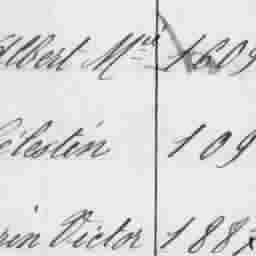 Albert Mel 1609
Célestin 109
rin Victor 188